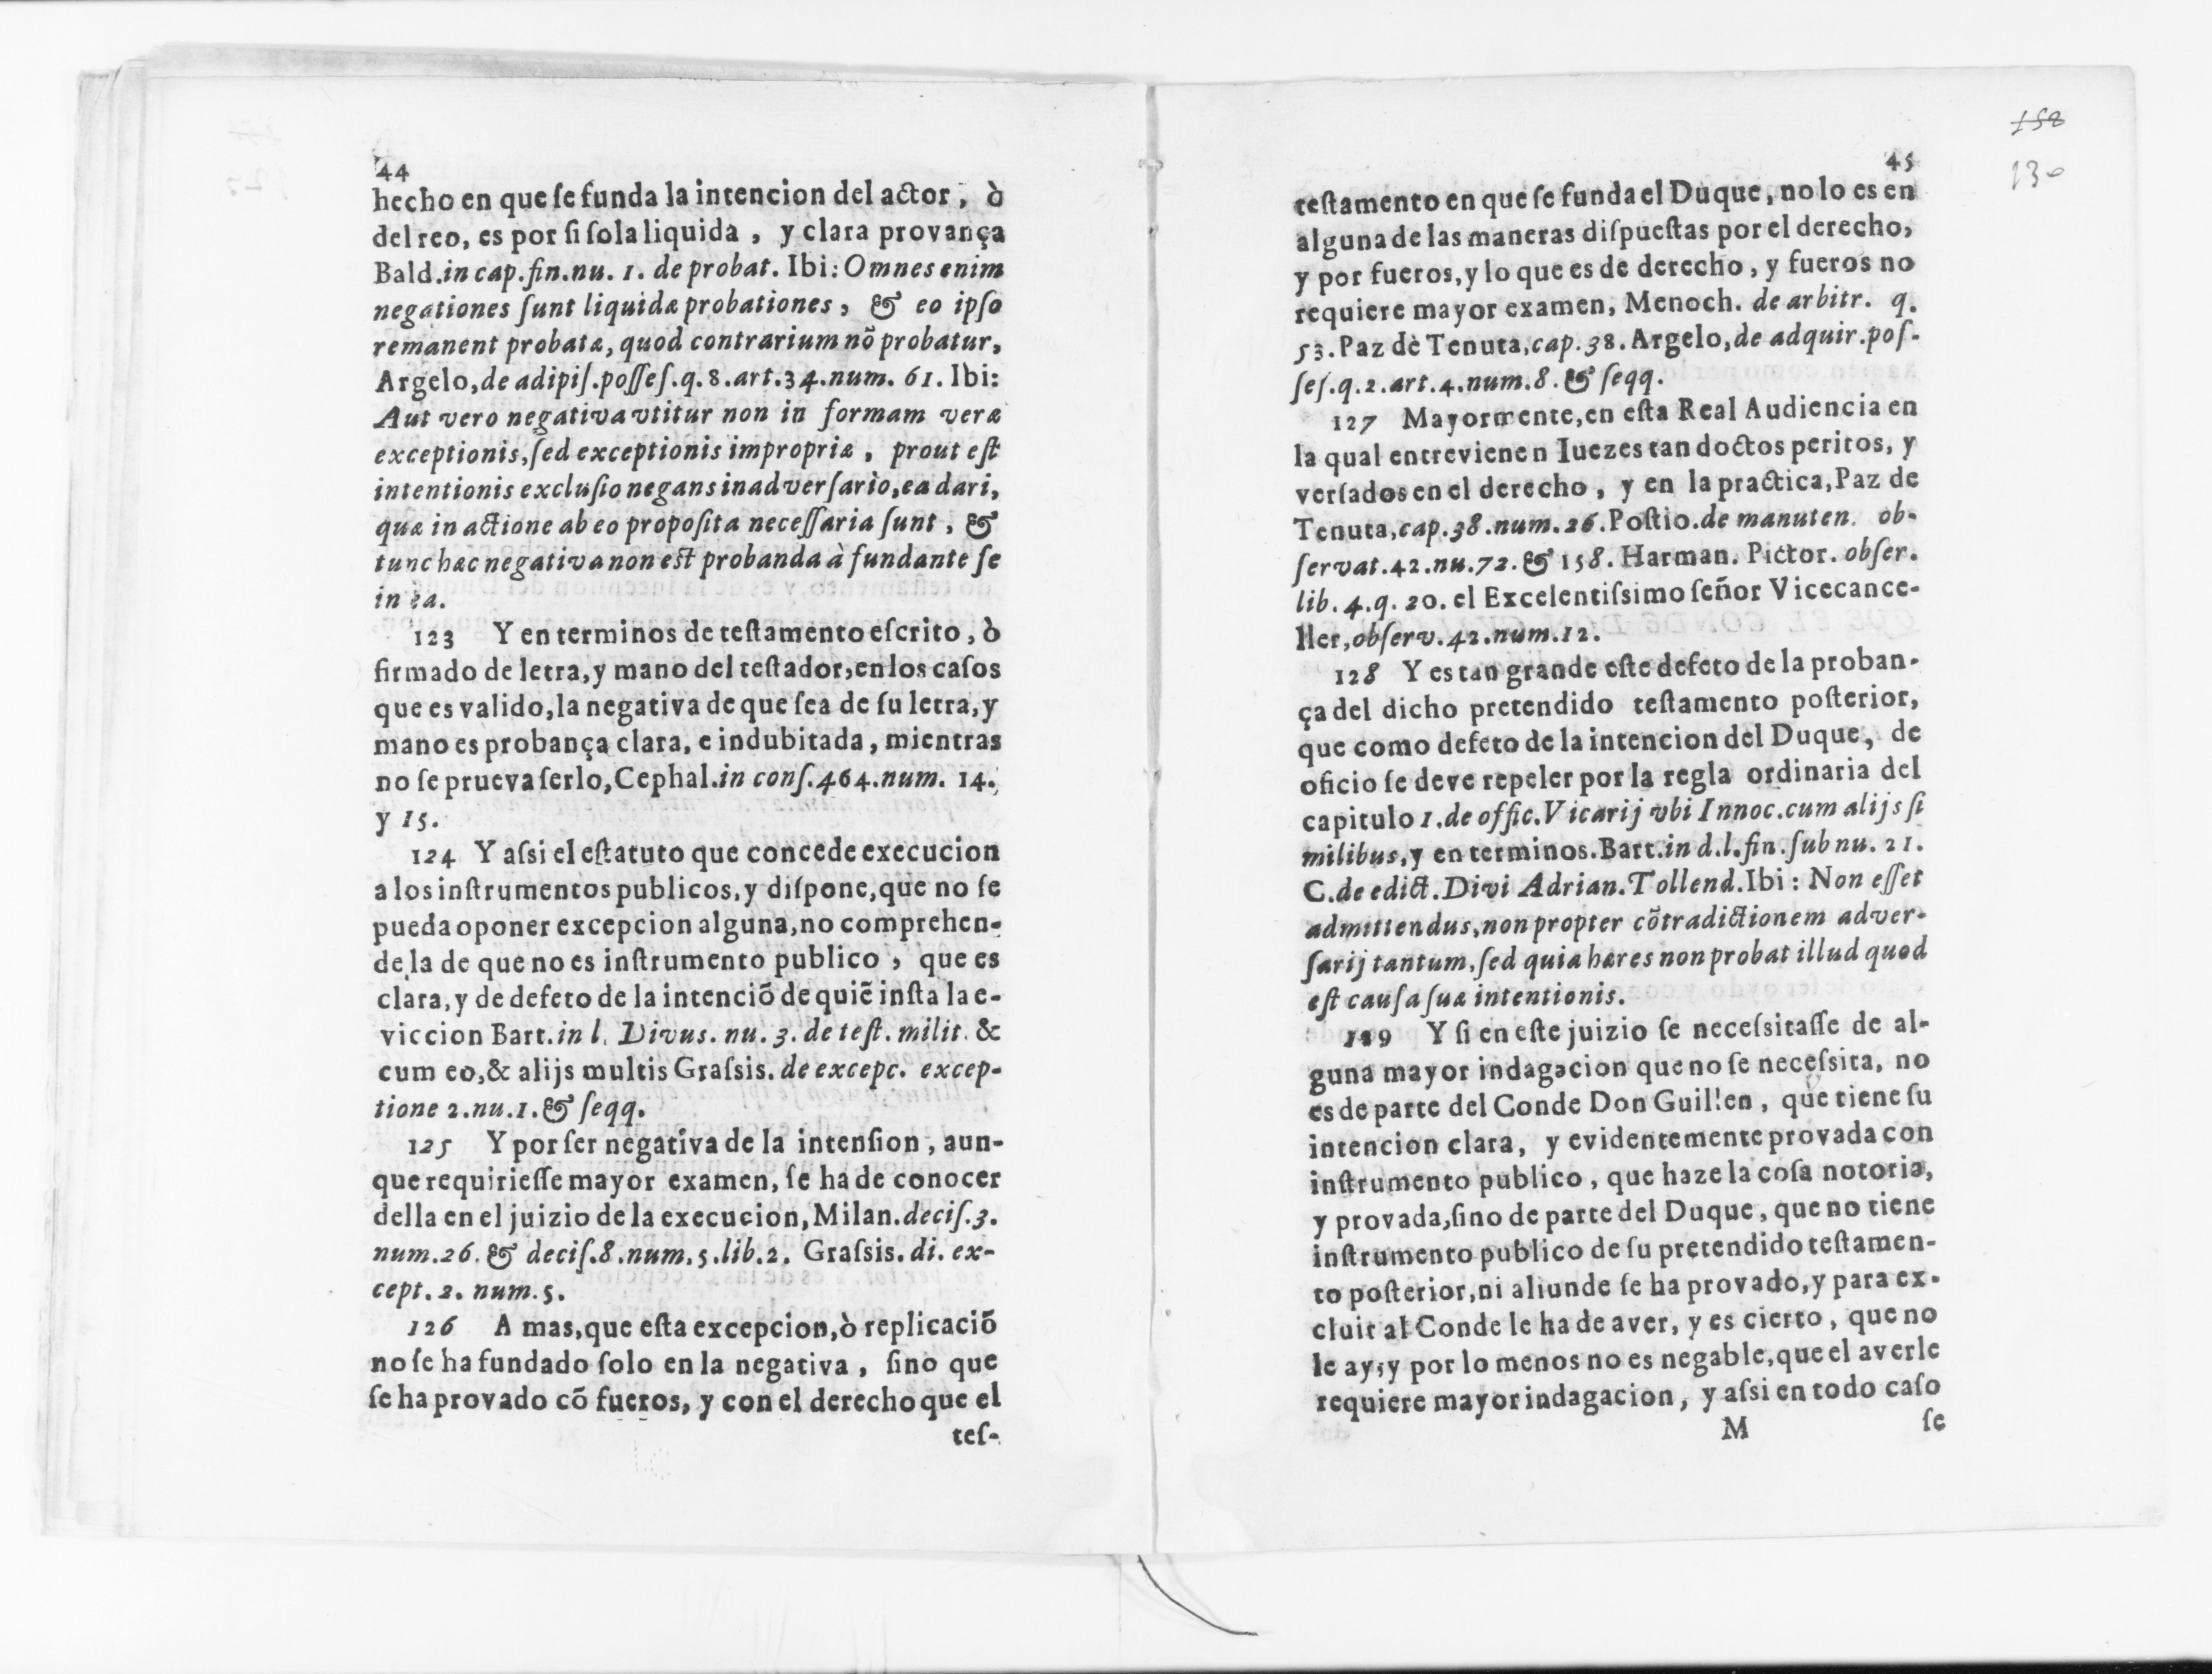 44
hecho en que ſe funda la intencion del actor, ò
del reo, es por ſi ſola liquida, y clara provança
Bald. in cap. fin. nu. 1. de probat. Ibi: Omnes enim
negationes ſunt liquidæ probationes, & eo ipſo
remanent probatæ, quod contrarium nõ probatur,
Argelo, de adipiſ. poſſeſ. q. 8. art. 34. num. 61. Ibi:
Aut vero negativa vtitur non in formam veræ
exceptionis, ſed exceptionis impropriæ, prout eſt
intentionis excluſio negans in adverſario, ea dari,
quæ in actione ab eo propoſita neceſſaria ſunt, &
tunc hæc negativa non eſt probanda à fundante ſe
in ea.
123 Y en terminos de teſtamento eſcrito, ò
firmado de letra, y mano del teſtador, en los caſos
que es valido, la negativa de que ſea de ſu letra, y
mano es probança clara, e indubitada, mientras
no ſe prueva ſerlo, Cephal. in conſ. 464. num. 14.
y 15.
124 Y aſsi el eſtatuto que concede execucion
a los inſtrumentos publicos, y diſpone, que no ſe
pueda oponer excepcion alguna, no comprehen-
de la de que no es inſtrumento publico, que es
clara, y de defeto de la intenciõ de quiẽ inſta la e-
viccion Bart. in l. Divus. nu. 3. de teſt. milit. &
cum eo, & alijs multis Graſsis. de excepc. excep-
tione 2. nu. 1. & ſeqq.
125 Y por ſer negativa de la intenſion, aun-
que requirieſſe mayor examen, ſe ha de conocer
della en el juizio de la execucion, Milan. deciſ. 3.
num. 26. & deciſ. 8. num. 5. lib. 2. Graſsis. di. ex-
cept. 2. num. 5.
126 A mas, que eſta excepcion, ò replicaciõ
no ſe ha fundado ſolo en la negativa, ſino que
ſe ha provado cõ fueros, y con el derecho que el
teſ-
158
130
45
teſtamento en que ſe funda el Duque, no lo es en
alguna de las maneras diſpueſtas por el derecho,
y por fueros, y lo que es de derecho, y fueros no
requiere mayor examen, Menoch. de arbitr. q.
53. Paz dè Tenuta, cap. 38. Argelo, de adquir. poſ-
ſeſ. q. 2. art. 4. num. 8. & ſeqq.
127 Mayormente, en eſta Real Audiencia en
la qual entrevienen Iuezes tan doctos peritos, y
verſados en el derecho, y en la practica, Paz de
Tenuta, cap. 38. num. 26. Poſtio. de manuten. ob-
ſervat. 42. nu. 72. & 158. Harman. Pictor. obſer.
lib. 4. q. 20. el Excelentiſsimo ſeñor Vicecance-
ller, obſerv. 42. num. 12.
128 Y es tan grande eſte defeto de la proban-
ça del dicho pretendido teſtamento poſterior,
que como defeto de la intencion del Duque, de
oficio ſe deve repeler por la regla ordinaria del
capitulo 1. de offic. Vicarij vbi Innoc. cum alijs ſi
milibus, y en terminos. Bart. in d. l. fin. ſub nu. 21.
C. de edict. Divi Adrian. Tollend. Ibi: Non eſſet
admittendus, non propter cõtradictionem adver-
ſarij tantum, ſed quia hæres non probat illud quod
eſt cauſa ſuæ intentionis.
129 Y ſi en eſte juizio ſe neceſsitaſſe de al-
guna mayor indagacion que no ſe neceſsita, no
es de parte del Conde Don Guillen, que tiene ſu
intencion clara, y evidentemente provada con
inſtrumento publico, que haze la coſa notoria,
y provada, ſino de parte del Duque, que no tiene
inſtrumento publico de ſu pretendido teſtamen-
to poſterior, ni aliunde ſe ha provado, y para ex-
cluir al Conde le ha de aver, y es cierto, que no
le ay; y por lo menos no es negable, que el averle
requiere mayor indagacion, y aſsi en todo caſo
M ſe